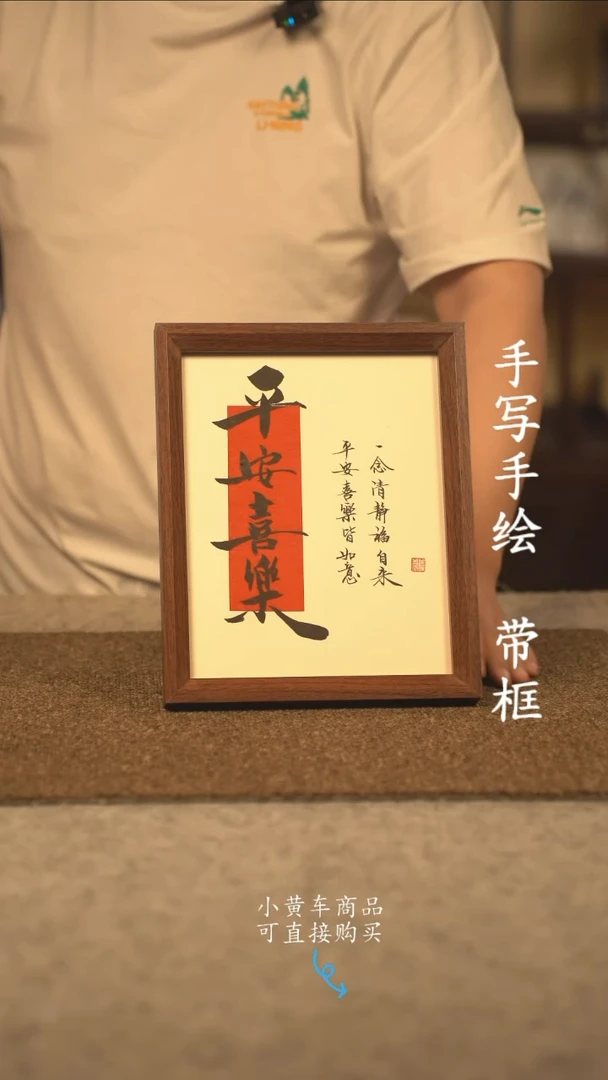 平安喜樂
一念清静福自来
平安喜樂皆如意
手写手绘 带框
小黄车商品
可直接购买